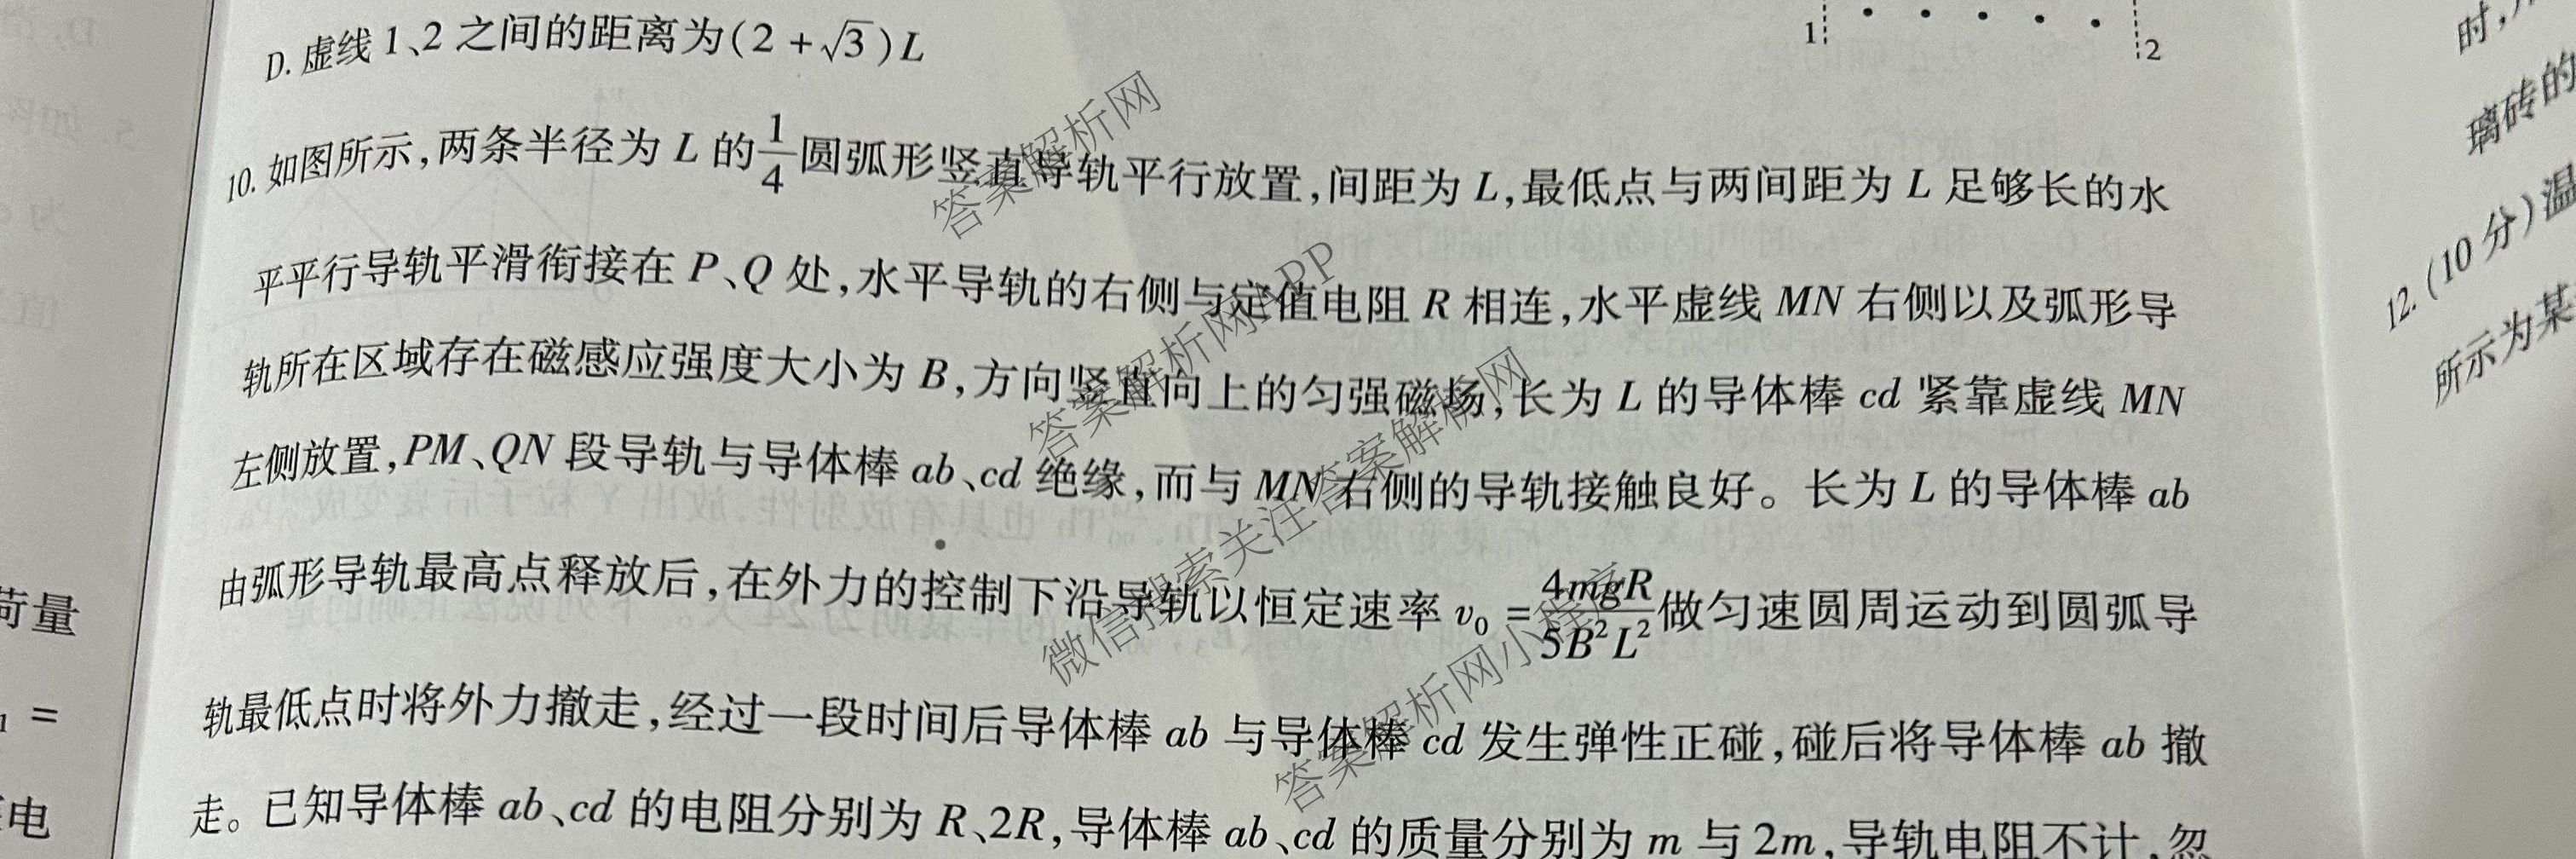 D. 虚线 1、2 之间的距离为(2 + √3)L
1
2
10. 如图所示,两条半径为 L 的 1/4 圆弧形竖直导轨平行放置,间距为 L,最低点与两间距为 L 足够长的水
平平行导轨平滑衔接在 P、Q 处,水平导轨的右侧与定值电阻 R 相连,水平虚线 MN 右侧以及弧形导
轨所在区域存在磁感应强度大小为 B,方向竖直向上的匀强磁场,长为 L 的导体棒 cd 紧靠虚线 MN
左侧放置,PM、QN 段导轨与导体棒 ab、cd 绝缘,而与 MN 右侧的导轨接触良好。长为 L 的导体棒 ab
由弧形导轨最高点释放后,在外力的控制下沿导轨以恒定速率 v₀ = 4mgR/5B²L² 做匀速圆周运动到圆弧导
轨最低点时将外力撤走,经过一段时间后导体棒 ab 与导体棒 cd 发生弹性正碰,碰后将导体棒 ab 撤
走。已知导体棒 ab、cd 的电阻分别为 R、2R,导体棒 ab、cd 的质量分别为 m 与 2m,导轨电阻不计,忽
荷量
₁ =
电
时,
璃砖的
12. (10 分)温
所示为某
答案解析网
答案解析网APP
答案解析网
微信搜索关注答案解析网
答案解析网小程序